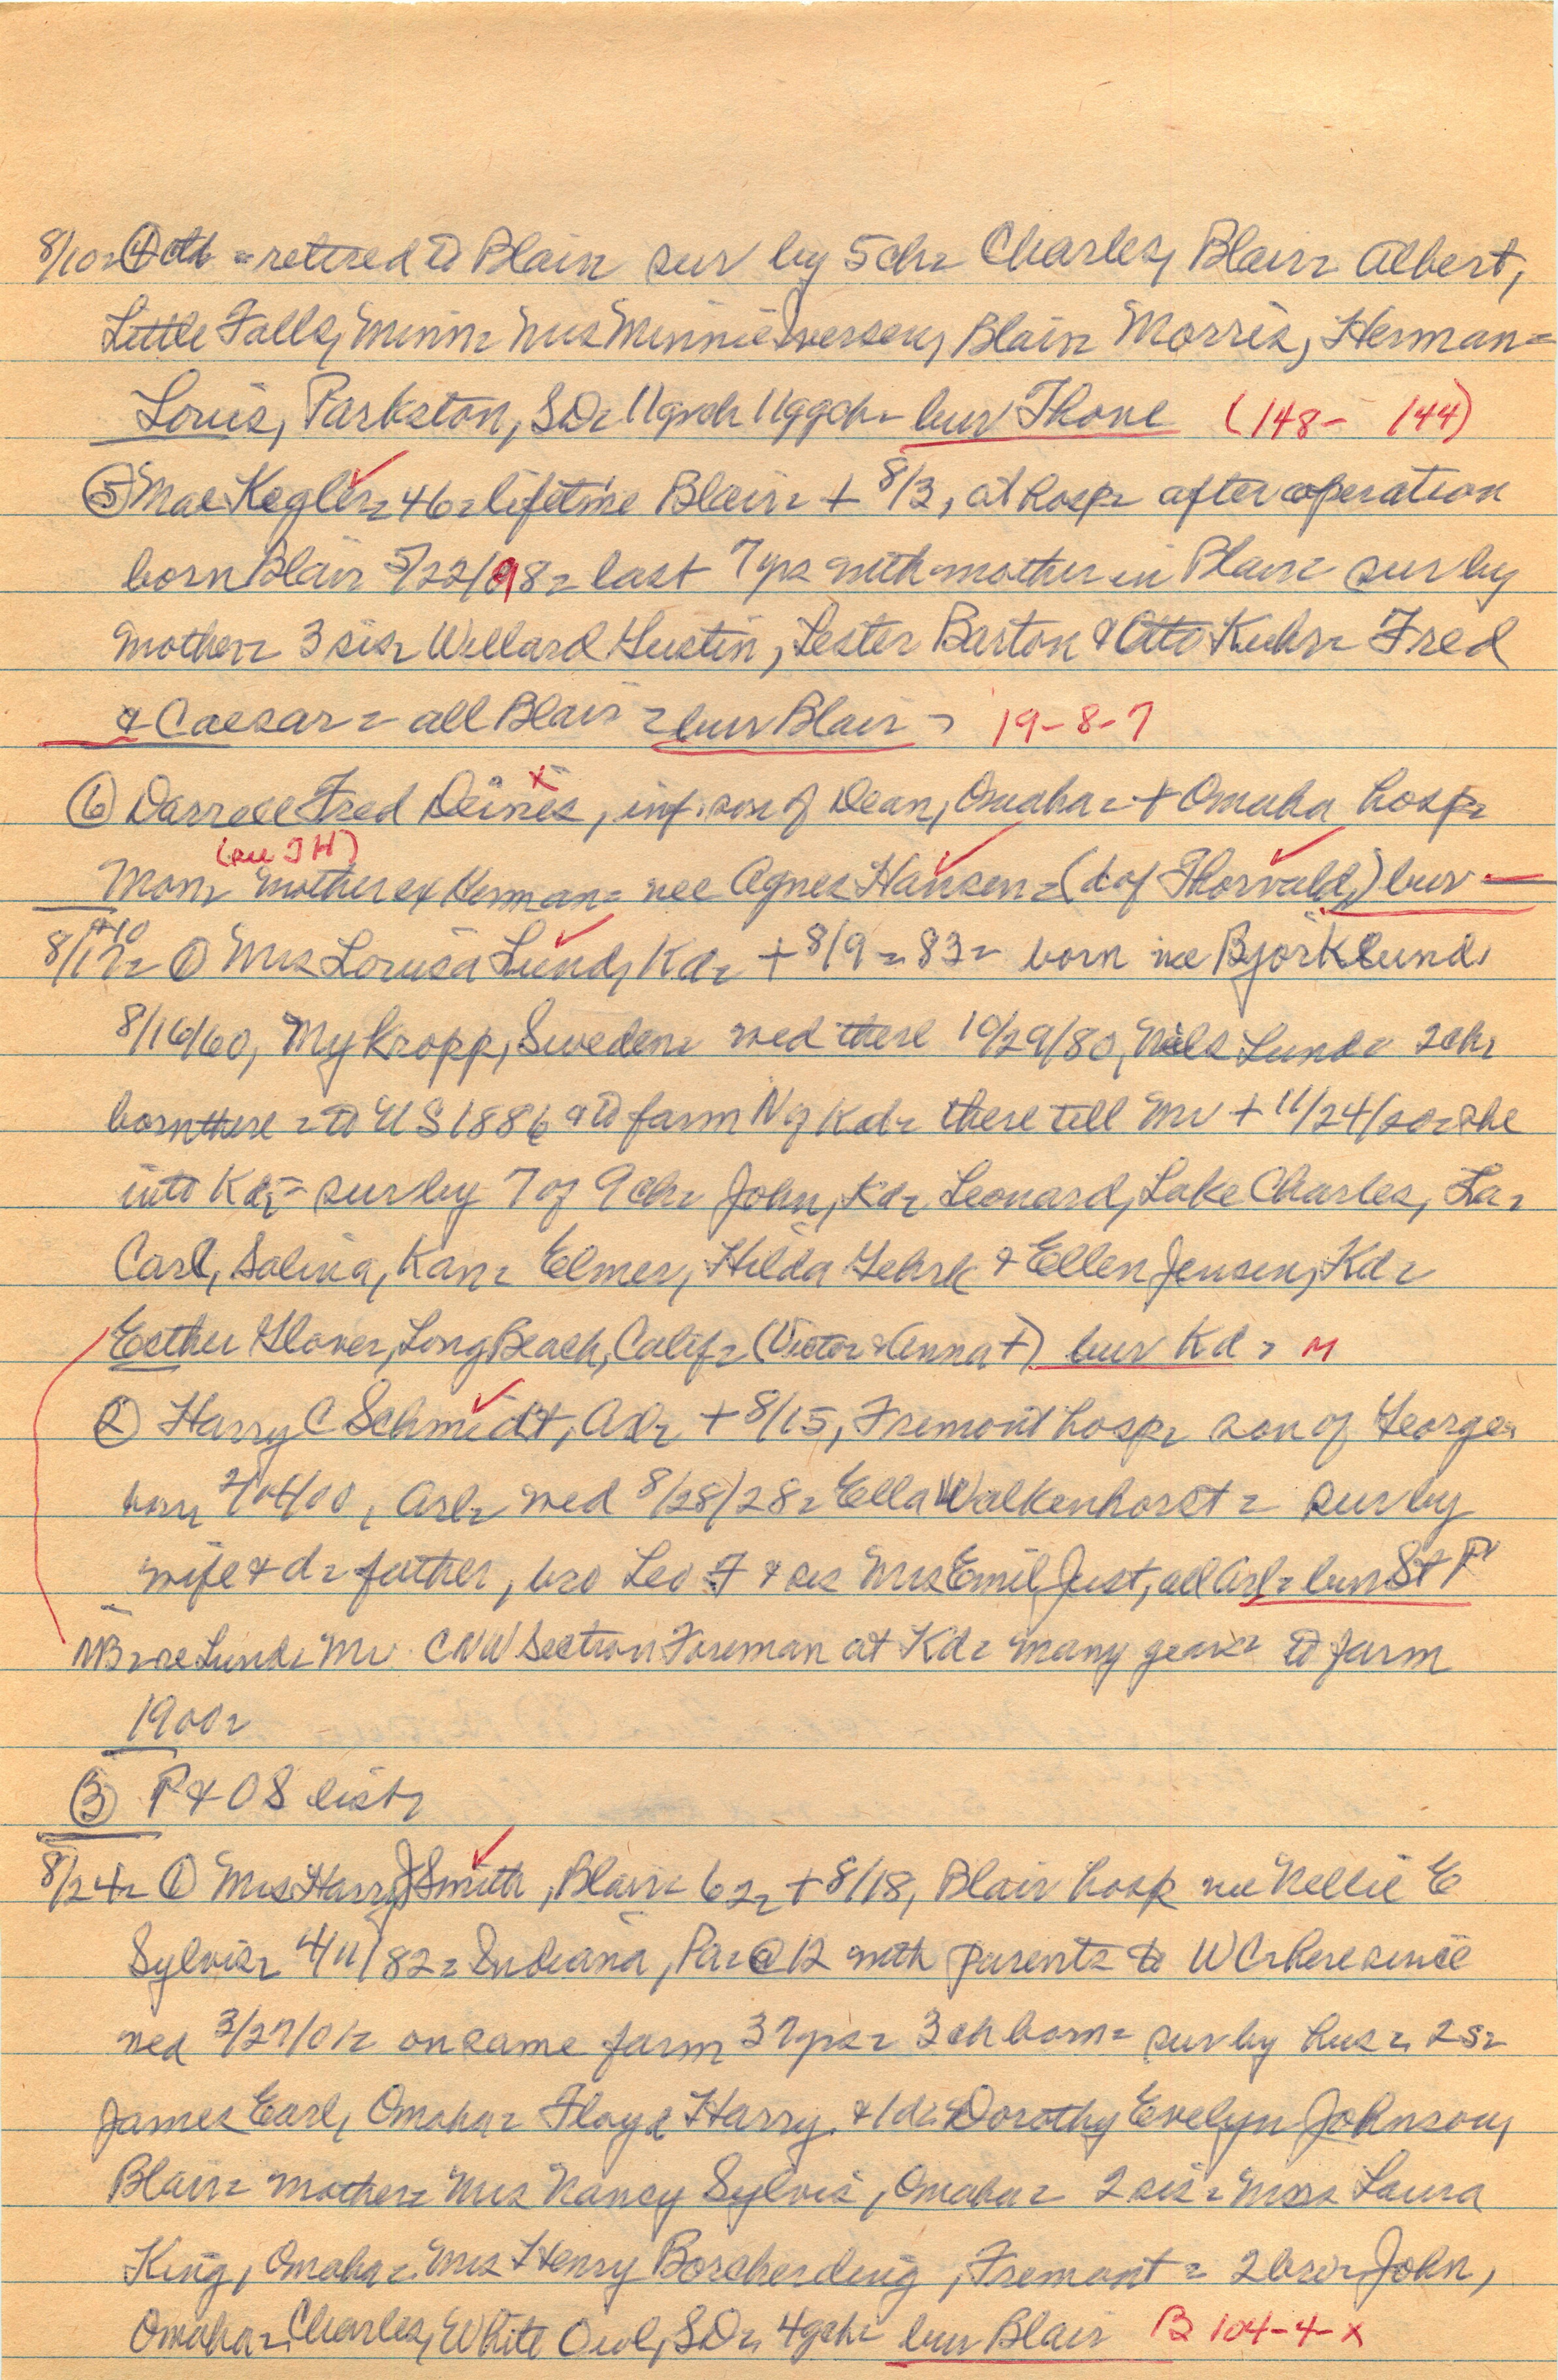 8/10= ④ ctd = retired to Blair= sur by 5ch= Charles, Blair= Albert,
Little Falls, Minn= Mrs Minnie Iversen, Blair= Morris, Herman=
Louis, Parkston, SD= 11gch 11ggch= bur Thone (148- 144)
⑤ Mae Kegler= 46= lifetime Blair= + 8/3, at hosp= after operation
born Blair 5/22/98= last 7 yrs with mother in Blair= sur by
mother= 3 sis= Willard Gustin, Lester Barton & Otto Kuhr= Fred
& Caesar= all Blair = bur Blair = 19-8-7
⑥ Darrell Fred Deines, inf. son of Dean, Omaha= + Omaha hosp=
(see TH)
Mon= mother ex Herman= nee Agnes Hansen= (d of Thorvald,) bur —
8/17= ① Mrs Lousia Lund, Kd= + 8/9= 83= born nee Bjorklund,
8/16/60, Mykropp, Sweden= wed there 10/29/80, Nils Lund= 2ch=
born there = to US 1886 & to farm N of Kd= there till Mr + 11/24/20= she
into Kd= sur by 7 of 9 ch= John, Kd= Leonard, Lake Charles, La=
Carl, Salina, Kan= Elmer, Hilda Gehrk & Ellen Jensen, Kd=
Esther Glover, Long Beach, Calif= (Victor & Anna +) bur Kd = M
② Harry C Schmidt, Arl= + 8/15, Fremont hosp= son of George=
born 2/04/00, Arl= wed 8/28/28= Ella Walkenhorst = sur by
wife & d= father, bro Leo F & sis Mrs Emil Just, all Arl= bur St P
NB= re Lund= Mr CNW Section Foreman at Kd= many years= to farm
1900=
③ P & OS list=
8/24= ① Mrs Harry J Smith, Blair= 62= + 8/18, Blair hosp nee Nellie E
Sylvis= 4/11/82= Indiana, Pa= @ 12 with parents to WC= here since
wed 3/27/01= on same farm 37 yrs= 3 ch born= sur by hus= 2s=
James Earl, Omaha= Floyd Harry & 1d= Dorothy Evelyn Johnson,
Blair= mother= Mrs Nancy Sylvis, Omaha= 2 sis= Mrs Laura
King, Omaha= Mrs Henry Borcherding, Fremont = 2 bro= John,
Omaha=, Charles, White Owl, SD= 4gch= bur Blair B 104-4-x